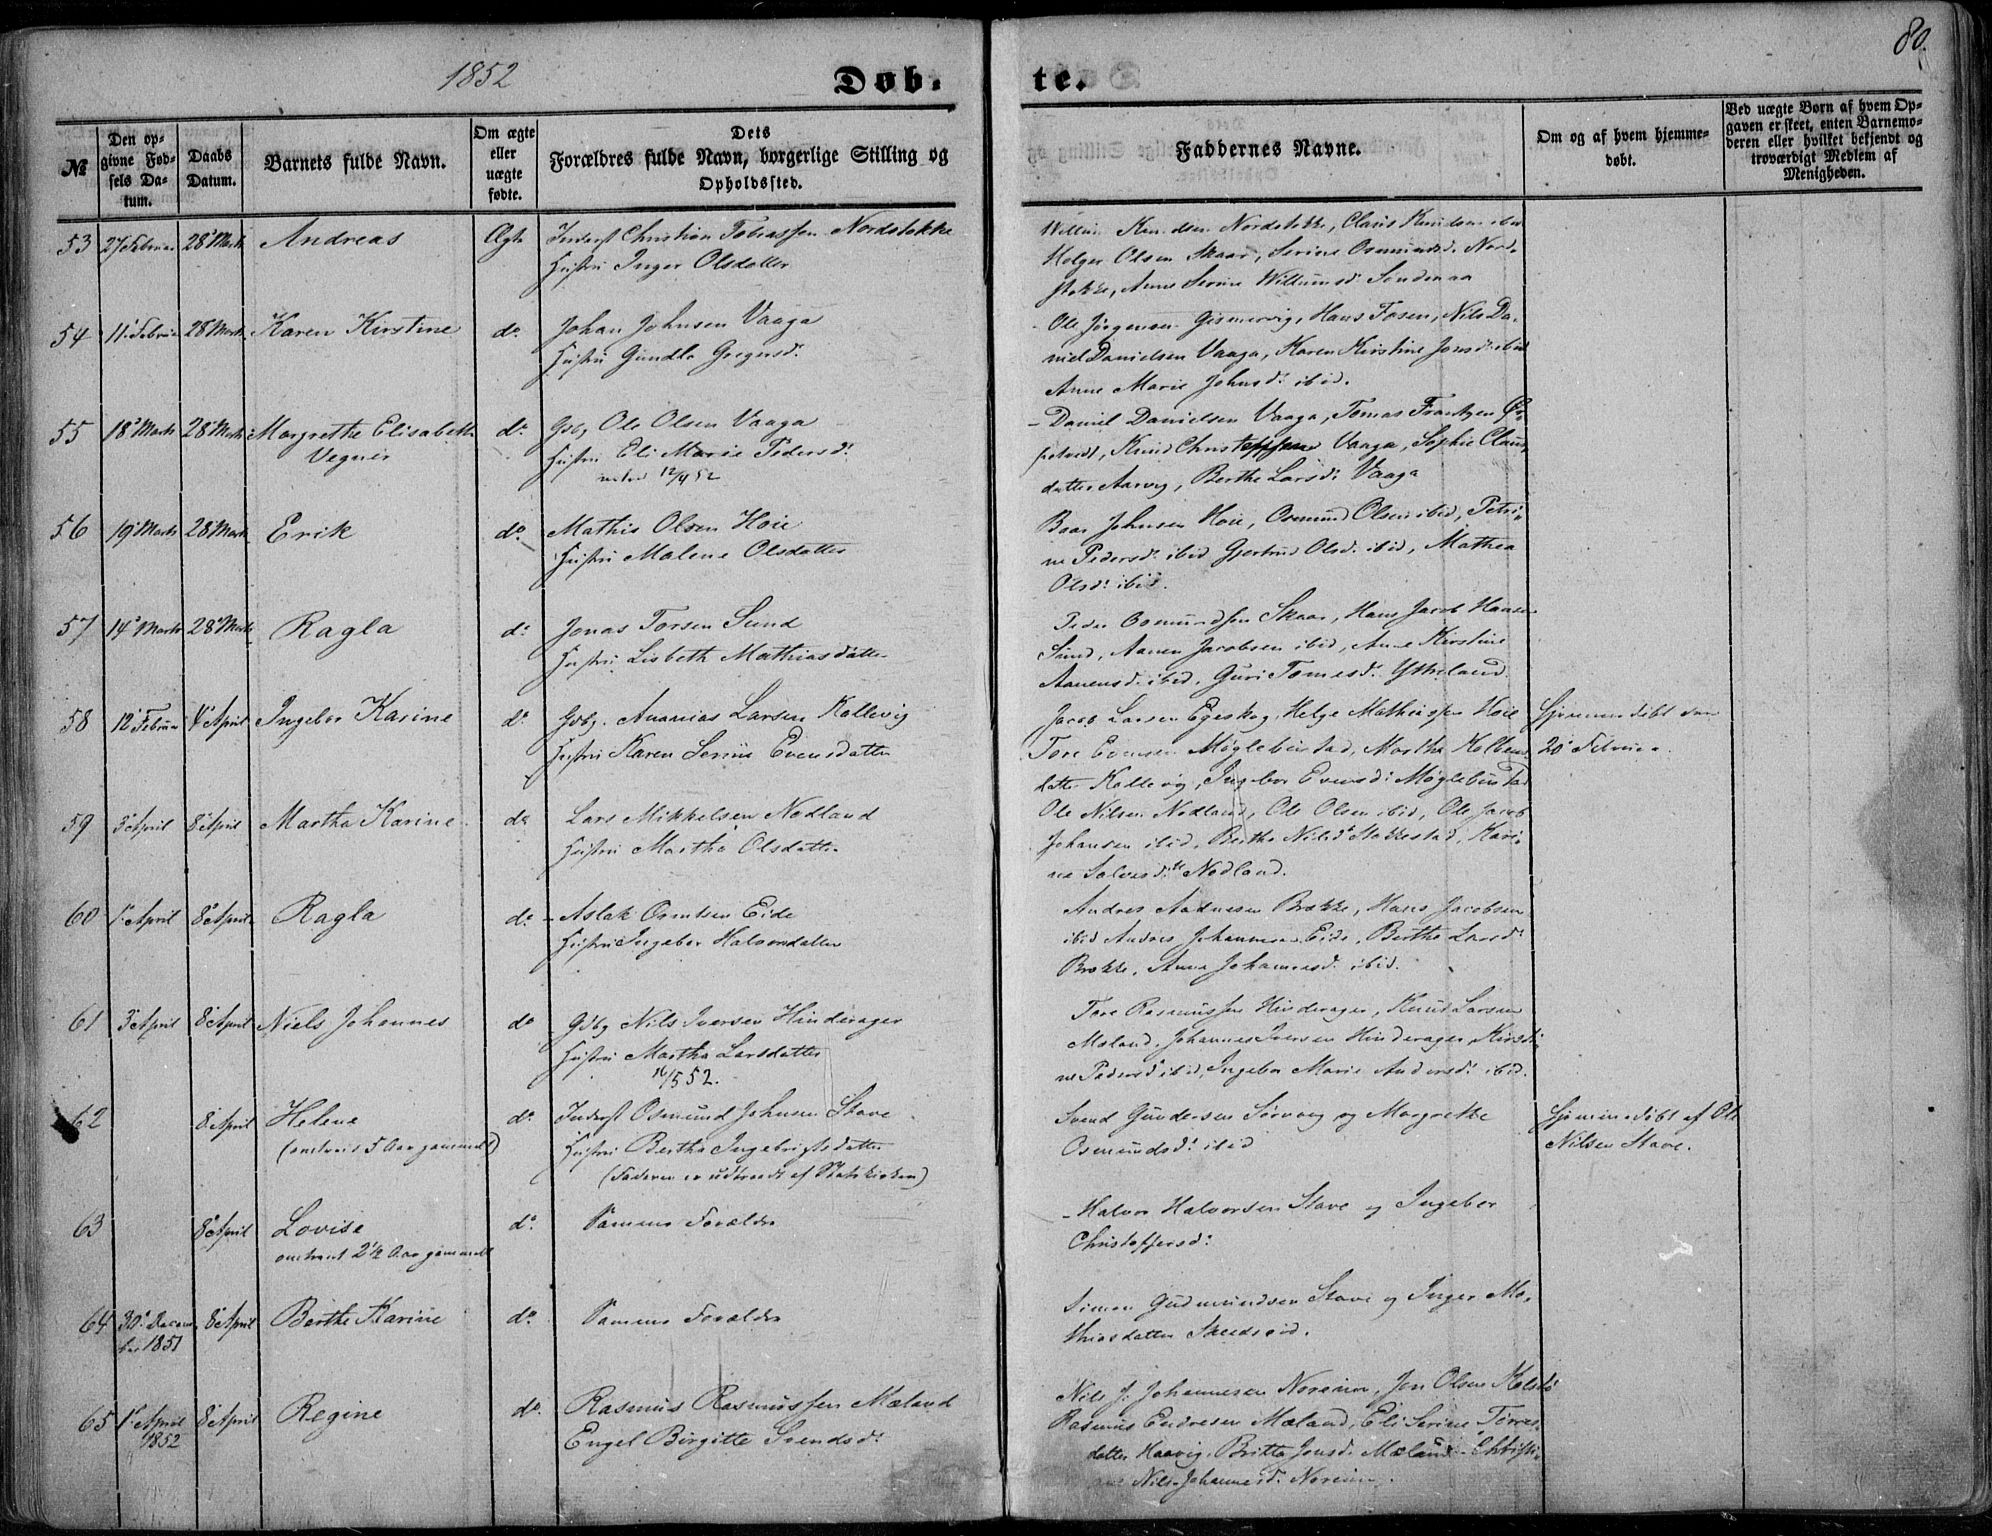 1852
Døb.
te.
80.
№
Den opgivne Fødsels Datum.
Daabs Datum.
Barnets fulde Navn.
Om ægte eller uægte fødte.
Dets Forældres fulde Navn, borgerlige Stilling og Opholdssted.
Faddernes Navne.
Om og af hvem hjemmedøbt.
Ved uægte Børn af hvem Opgaven er skeet, enten Barnemoderen eller hvilket bekjendt og troværdigt Medlem af Menigheden.
53 27 Februar 28 Marts Andreas Ægte Inderst Christian Tobiassen Nordstokke
Hustru Inger Olsdatter
Nordstokke, Claus Knudsen ibid
Holger Olsen Skaar, Serine Osmundsd. Nord-
stokke, Anne Serine Willumsd. Sandenaa
54 11 Februar 28 Marts Karen Kirstine do. Johan Johnsen Vaaga
Hustru Gundla Gregersd.
Ole Jørgensen Gismervig, Hans Fosen, Nils Da-
niel Danielsen Vaaga, Karen Kirstine Jonsd. ibid
Anne Marie Johnsd. ibid.
55 18 Marts 28 Marts Margrethe Elisabeth do. Gbg. Ole Olsen Vaaga
Vegner
Hustru Eli Marie Pedersd.
12/9 52
Daniel Danielsen Vaaga, Tomas Frantzen
Knud Christophersen Vaaga, Sophie Claus-
datter Aarvig, Berthe Larsd. Vaaga
56 19 Marts 28 Marts Erik do. Mathis Olsen Hoie
Hustru Malene Olsdatter
Baar Johnsen Hoie, Osmund Olsen ibid, Petri-
ne Pedersd. ibid Gjertrud Olsd. ibid, Mathea
Olsd. ibid.
57 14 Marts 28 Marts Ragla do. Jonas Torsen Sund
Hustru Lisbeth Mathiasdatter
Peder Osmundsen Skaar, Hans Jacob Hansen
Sund, Aanen Jacobsen ibid, Anne Kirstine
Aanensd. ibid, Guri Tomesd. Ytreland
58 12 Februar 4 April Ingebor Karine do. Gbg. Ananias Larsen Kallevig
Hustru Karen Serine Evensdatter
Jacob Larsen Egeskog, Helge Mathiassen Hoie
Tore Evensen Møglebustad, Martha Kolbens-
datter Kallevig, Ingebor Evensd. Møglebustad
Hjemmedøbt den
20 Februar.
59 3 April 8 April Martha Karine do Lars Mikkelsen Nodland
Hustru Martha Olsdatter
Ole Nilsen Nodland, Ole Olsen ibid, Ole Jacob
Johansen ibid, Berthe Nilsd. Stokkestad, Kari-
ne Salvesd. Nodland.
60 1 April 8 April Ragla do. Aslak Osmundsen Eide
Hustru Ingebor Halvorsdatter
Andres Aadnesen Brekke, Hans Jacobsen
ibid Andres Johannesen Eide, Berthe Larsd.
Brekke, Anne Johannesd. ibid.
61 3 April 8 April Niels Johannes do Gbg Nils Iversen Hinderager
Hustru Martha Larsdatter
16/5 52.
Tore Rasmussen Hinderager, Knud Larsen
Mæland, Johannes Iversen Hinderager, Kirsti-
ne Pedersd. ibid, Ingebor Marie Andersd. ibid.
62 8 April Helene do. Inderst Osmund Johnsen Stave
(omtrent 5 Aar gammel)
Hustru Berthe Ingebrigtsdatter
(Faderen er udtraadt af Statskirken)
Svend Gundersen Sørvaag og Margrethe
Osmundsd. ibid
Hjemmedøbt af Ole
Nilsen Stave.
63 8 April Lovise do. Samme Forældre
omtrent 2½ Aar gammel
Halvor Halvorsen Stave og Ingebor
Christophersd.
64 30 Decem- 8 April Berthe Karine do. Samme Forældre
ber 1851
Simon Gudmundsen Stave og Inger Ma-
thiasdatter
65 1 April 8 April Regine do. Rasmus Rasmussen Mæland
1852
Engel Birgitte Svendsd.
Nils J. Johannesen Noreim, Jon Olsen Kolstø
Rasmus Endresen Mæland, Eli Serine Torres-
datter Haavig, Britta Jonsd. Mæland Christi-
ane Nils-Johannesd. Noreim.